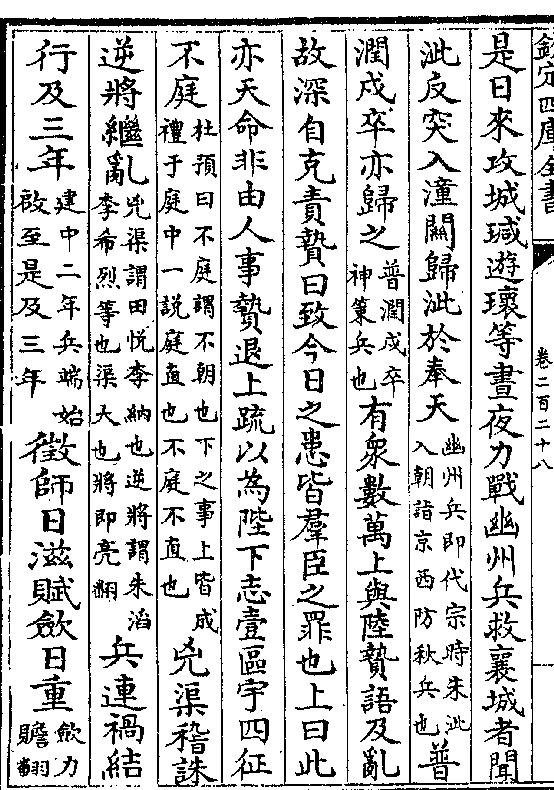 欽定四庫全書
卷二百二十八
是日來攻城瑊遊瓌等晝夜力戰幽州兵救襄城者聞
泚反突入潼關歸泚於奉天幽州兵即代宗時朱泚入朝詣京西防秋兵也普
潤戍卒亦歸之普潤戍卒神策兵也有衆數萬上與陸贄語及亂
故深自克責贄曰致今日之患皆羣臣之罪也上曰此
亦天命非由人事贄退上疏以為陛下志壹區宇四征
不庭杜預曰不庭謂不朝也下之事上皆成禮于庭中一説庭直也不庭不直也兇渠稽誅
逆將繼亂兇渠謂田悦李納也逆將謂朱滔李希烈等也渠大也將即亮翻兵連禍結
行及三年建中二年兵端始啟至是及三年徵師日滋賦斂日重斂力贍翻